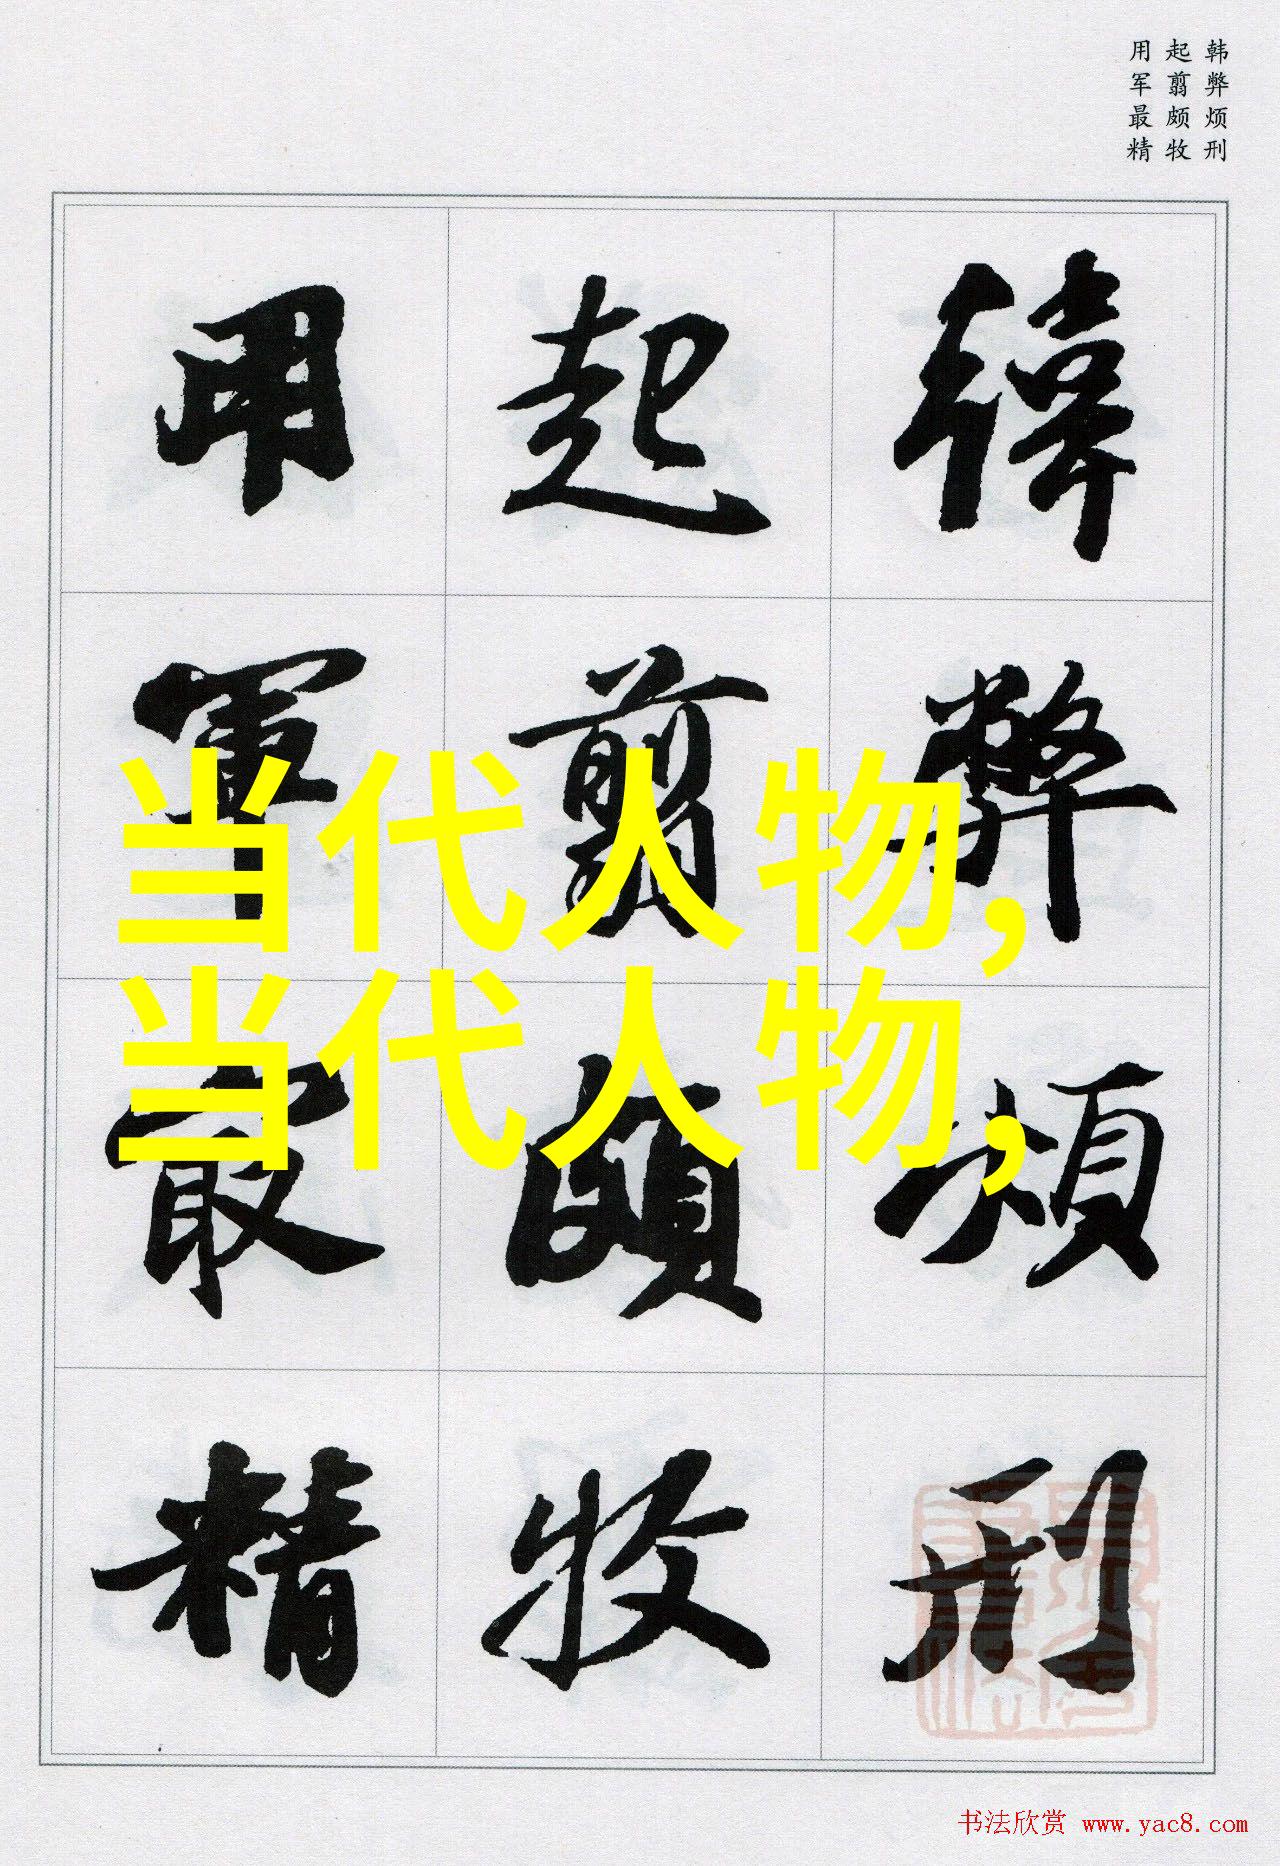 韩弊烦刑
起翦颇牧
用军最精
韓弊煩刑
起翦頗牧
用軍最精
当代人物,
当代人物,
书法欣赏 www.yac8.com